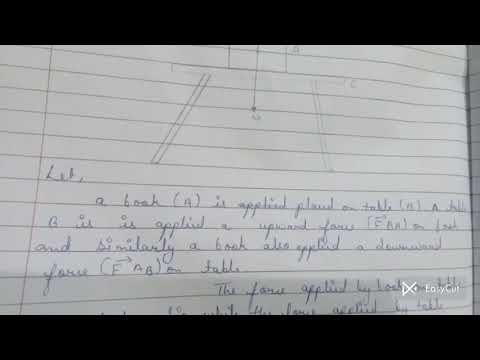 A
Let,
a book (A) is applied placed on table (B) A table
B is is applied a upward force (F BA) on book
and similarly a book also applied a downward
force (F AB) on table
The force applied by book on
while the force applied by table
EasyCut